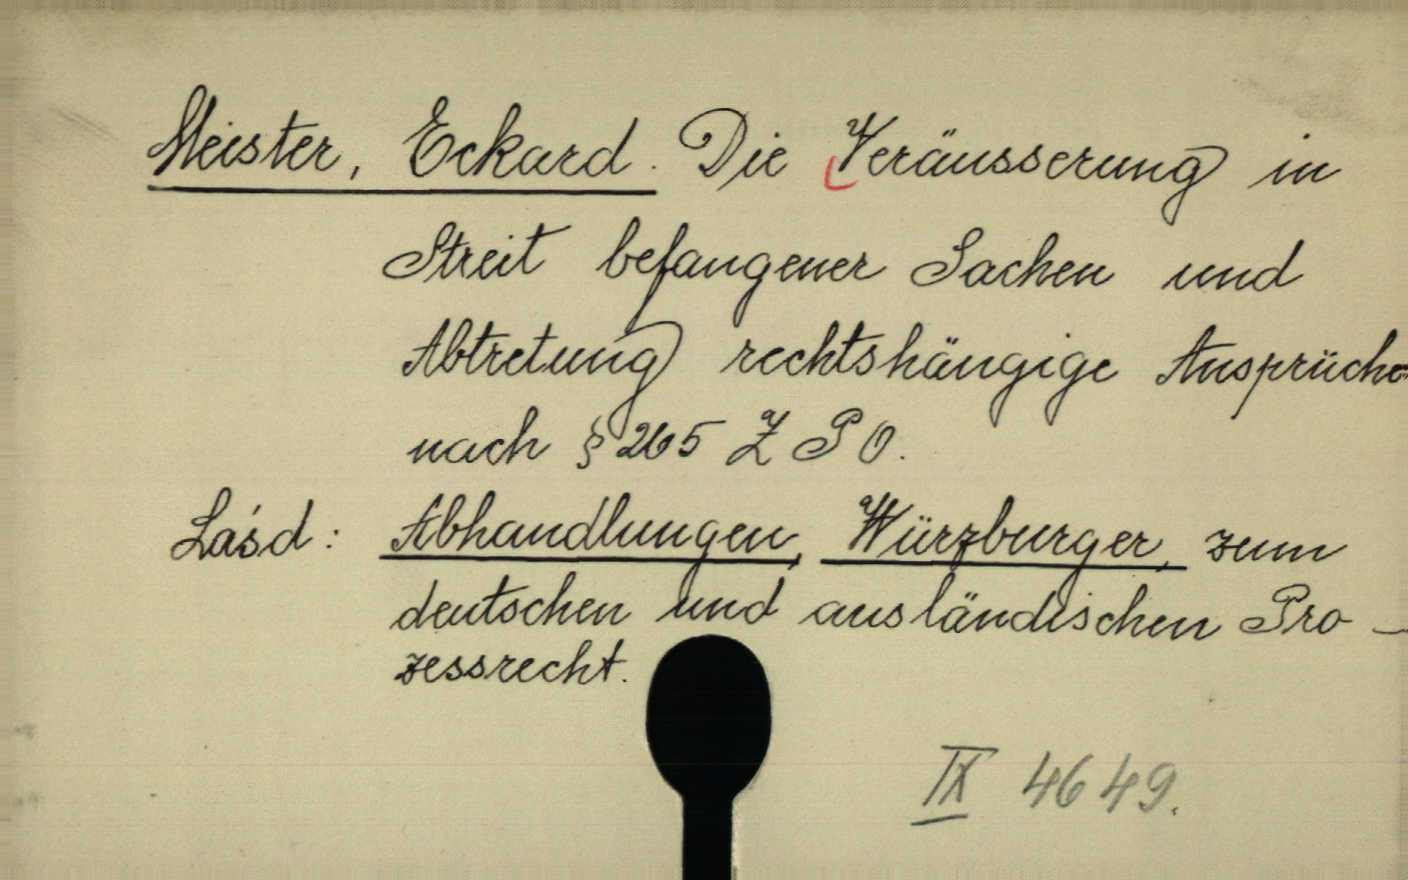 Meister, Eckard. Die Veräusserung in
Streit befangener Sachen und
Abtretung rechtshängige Ansprüche
nach § 265 Z P O.
Lásd: Abhandlungen, Würzburger, zum
deutschen und ausländischen Pro-
zessrecht.
IX 4649.